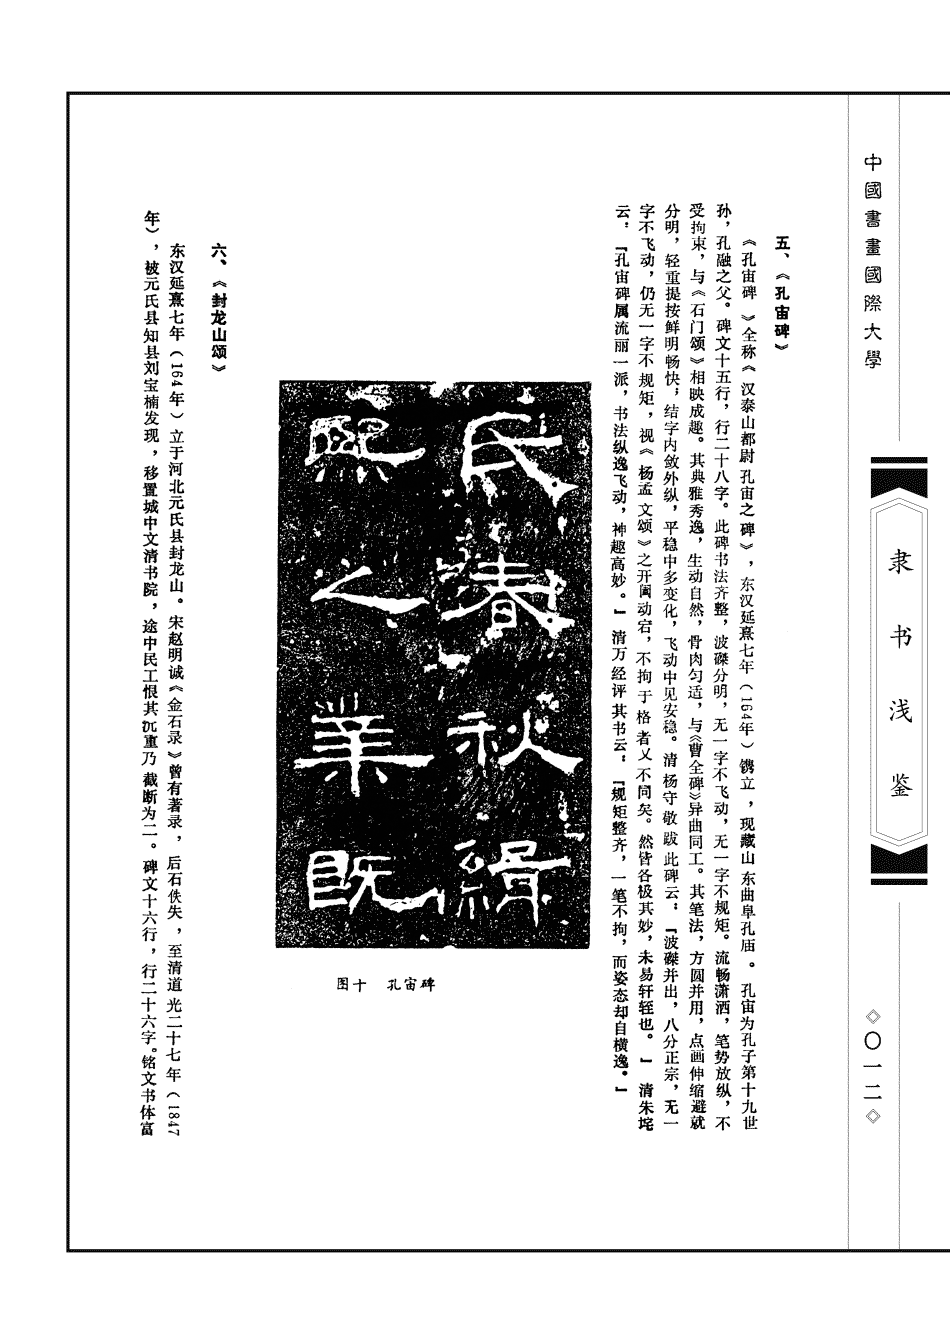 中國書畫國際大學
隶书浅鉴
◇〇一二◇
五、《孔宙碑》
《孔宙碑》全称《汉泰山都尉孔宙之碑》，东汉延熹七年（164年）镌立，现藏山东曲阜孔庙。孔宙为孔子第十九世
孙，孔融之父。碑文十五行，行二十八字。此碑书法齐整，波磔分明，无一字不飞动，无一字不规矩。流畅潇洒，笔势放纵，不
受拘束，与《石门颂》相映成趣。其典雅秀逸，生动自然，骨肉匀适，与《曹全碑》异曲同工。其笔法，方圆并用，点画伸缩避就
分明，轻重提按鲜明畅快；结字内敛外纵，平稳中多变化，飞动中见安稳。清杨守敬跋此碑云：『波磔并出，八分正宗，无一
字不飞动，仍无一字不规矩，视《杨孟文颂》之开阖动宕，不拘于格者又不同矣。然皆各极其妙，未易轩轾也。』清朱垞
云，『孔宙碑属流丽一派，书法纵逸飞动，神趣高妙。』清万经评其书云：『规矩整齐，一笔不拘，而姿态却自横逸。』
氏春秋缉
熙之业既
图十 孔宙碑
六、《封龙山颂》
东汉延熹七年（164年）立于河北元氏县封龙山。宋赵明诚《金石录》曾有著录，后石佚失，至清道光二十七年（1847
年），被元氏县知县刘宝楠发现，移置城中文清书院，途中民工恨其沉重乃截断为二。碑文十六行，行二十六字。铭文书体富